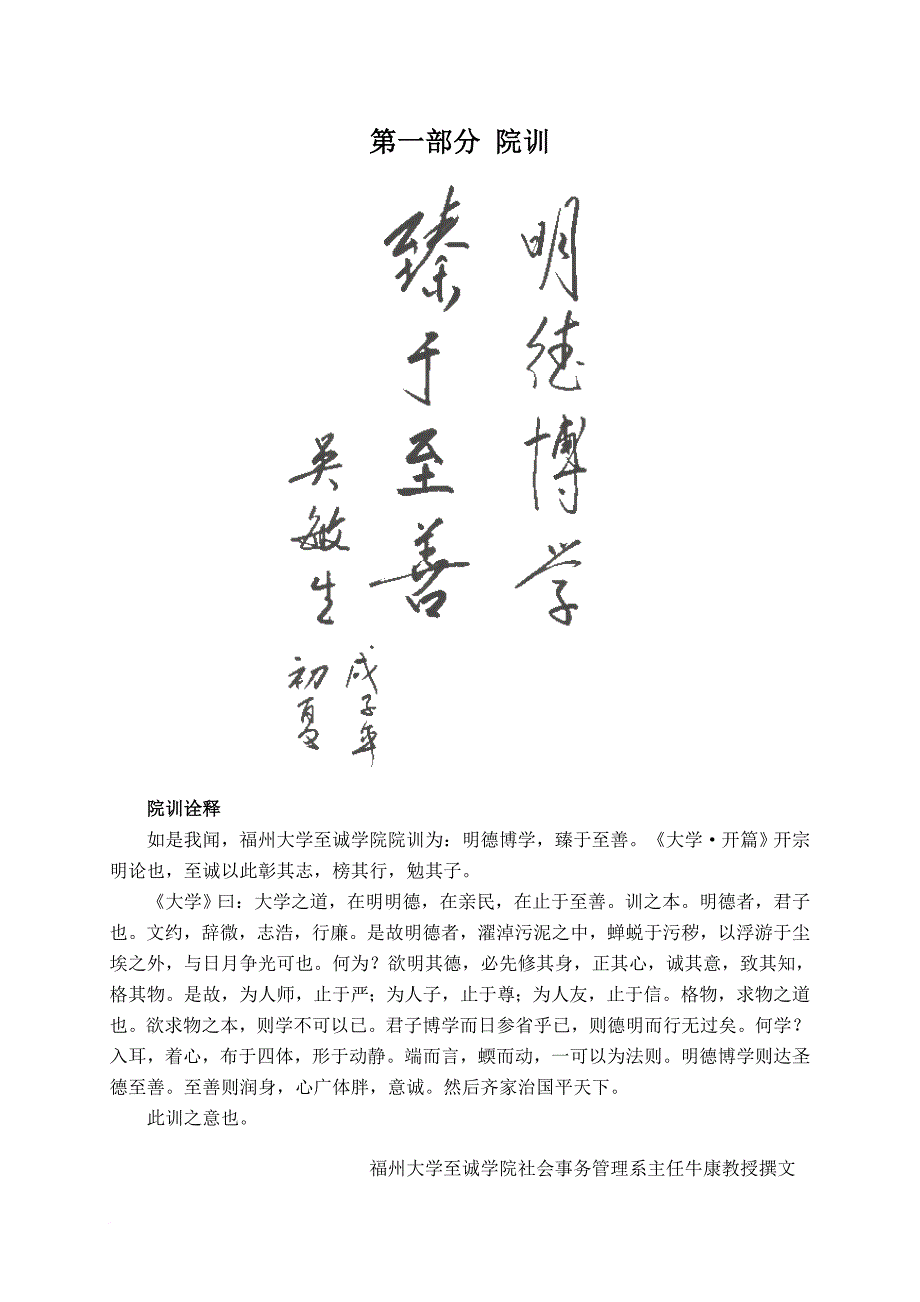 第一部分 院训
明德博学
臻于至善
吴敏生
戊子年
初夏
院训诠释
如是我闻，福州大学至诚学院院训为：明德博学，臻于至善。《大学·开篇》开宗
明论也，至诚以此彰其志，榜其行，勉其子。
《大学》曰：大学之道，在明明德，在亲民，在止于至善。训之本。明德者，君子
也。文约，辞微，志浩，行廉。是故明德者，濯淖污泥之中，蝉蜕于污秽，以浮游于尘
埃之外，与日月争光可也。何为？欲明其德，必先修其身，正其心，诚其意，致其知，
格其物。是故，为人师，止于严；为人子，止于尊；为人友，止于信。格物，求物之道
也。欲求物之本，则学不可以已。君子博学而日参省乎已，则德明而行无过矣。何学？
入耳，着心，布于四体，形于动静。端而言，蝡而动，一可以为法则。明德博学则达圣
德至善。至善则润身，心广体胖，意诚。然后齐家治国平天下。
此训之意也。
福州大学至诚学院社会事务管理系主任牛康教授撰文